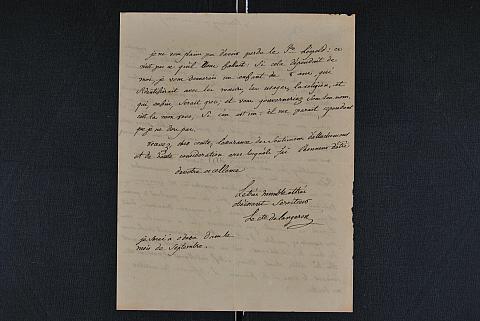 je ne vous plains pas d'avoir perdu le Pce Léopold; ce
n'est pas ce qu'il vous fallait: Si cela dépendait de
moi, je vous donnerais un enfant de 8 ans, qui
s'identifierait avec les mœurs, les usages, la religion, et
qui, enfin, serait grec; et vous gouverneriez sous son nom,
c'est là mon vœu, Si j'en ai un: il me parait cependant
que je ne dors pas.
recevez, cher comte, l'assurance des Sentiments d'attachement
et de haute considération avec laquelle j'ai l'honneur d'être
de votre excellence
Le très humble et très
obéissant Serviteur
Le cte de Langeron
je serai à odessa dans le
mois de Septembre.